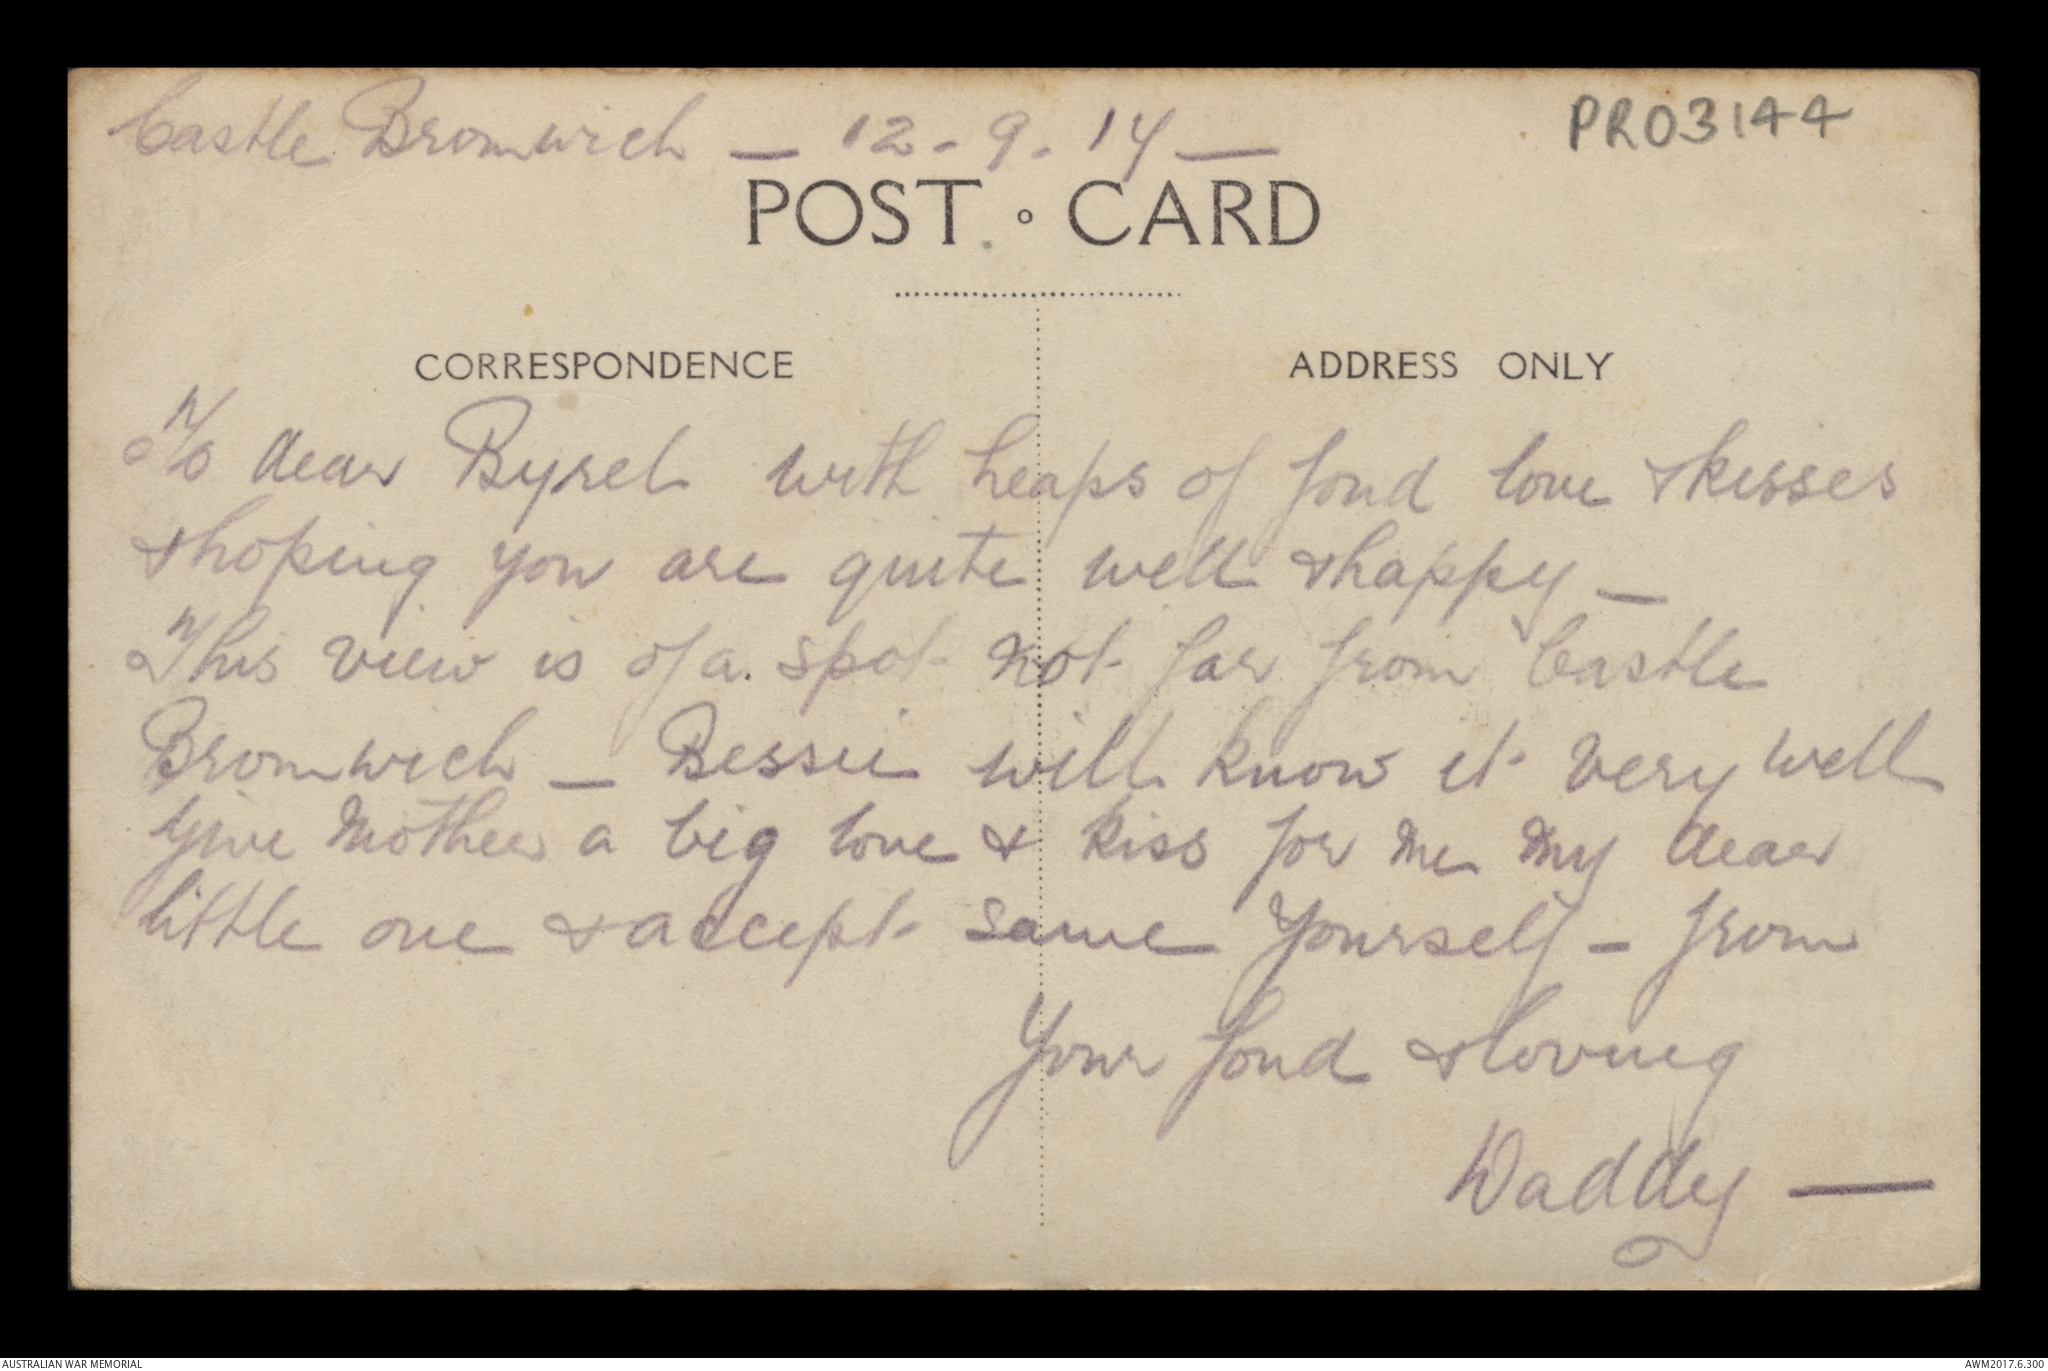 Castle Bromwich — 12-9.17 —
PR03144
POST CARD
CORRESPONDENCE
ADDRESS ONLY
To dear Byrel with heaps of fond love & kisses
& hoping you are quite well & happy —
This view is of a spot not far from Castle
Bromwich — Bessie will know it very well
Give Mother a big love & kiss for me my dear
little one & accept same yourself — from
Your fond & loving
Daddy —
AUSTRALIAN WAR MEMORIAL
AWM2017.6.300